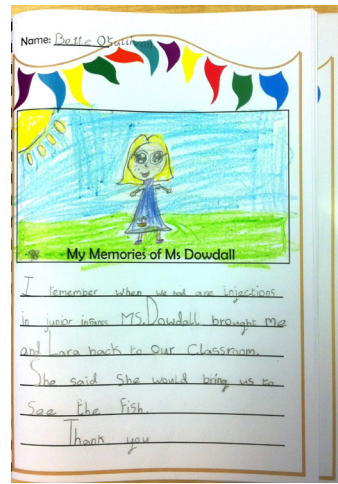 Name: Bette O'Sullivan
My Memories of Ms Dowdall
I remember when we had are injections
in junior infants MS. Dowdall brought me
and Lara back to our Classroom.
She said She would bring us to
See the fish.
Thank you